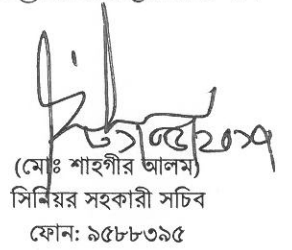 (মোঃ শাহগীর আলম)
সিনিয়র সহকারী সচিব
ফোন: ৯৫৮৮৩৯৫